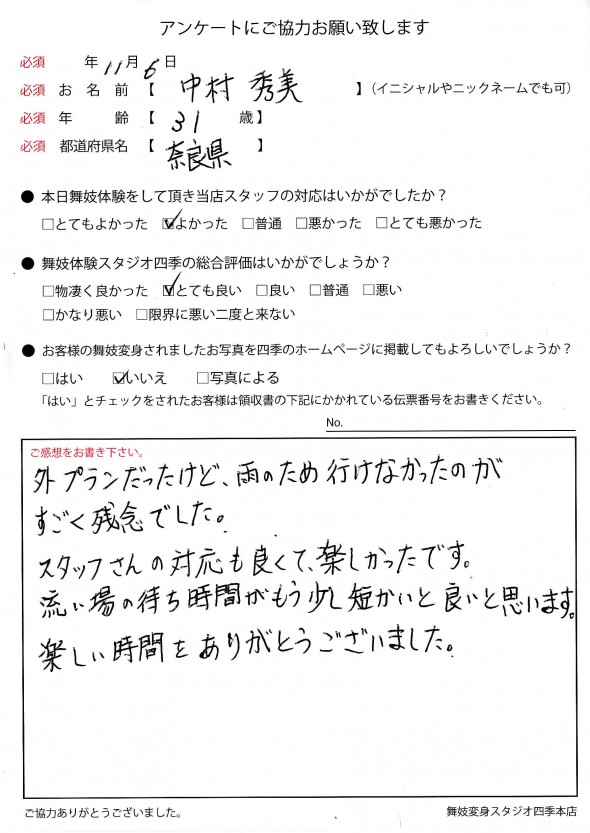 アンケートにご協力お願い致します
必須 年 11月 6日
必須 お名前【 中村 秀美 】（イニシャルやニックネームでも可）
必須 年齢【 31 歳】
必須 都道府県名【 奈良県 】
● 本日舞妓体験をして頂き当店スタッフの対応はいかがでしたか？
□とてもよかった ☑よかった □普通 □悪かった □とても悪かった
● 舞妓体験スタジオ四季の総合評価はいかがでしょうか？
□物凄く良かった ☑とても良い □良い □普通 □悪い
□かなり悪い □限界に悪い二度と来ない
● お客様の舞妓変身されましたお写真を四季のホームページに掲載してもよろしいでしょうか？
□はい ☑いいえ □写真による
「はい」とチェックをされたお客様は領収書の下記にかかれている伝票番号をお書きください。
No.
ご感想をお書き下さい。
外プランだったけど、雨のため行けなかったのが
すごく残念でした。
スタッフさんの対応も良くて、楽しかったです。
流い場の待ち時間がもう少し短かいと良いと思います。
楽しい時間をありがとうございました。
ご協力ありがとうございました。
舞妓変身スタジオ四季本店